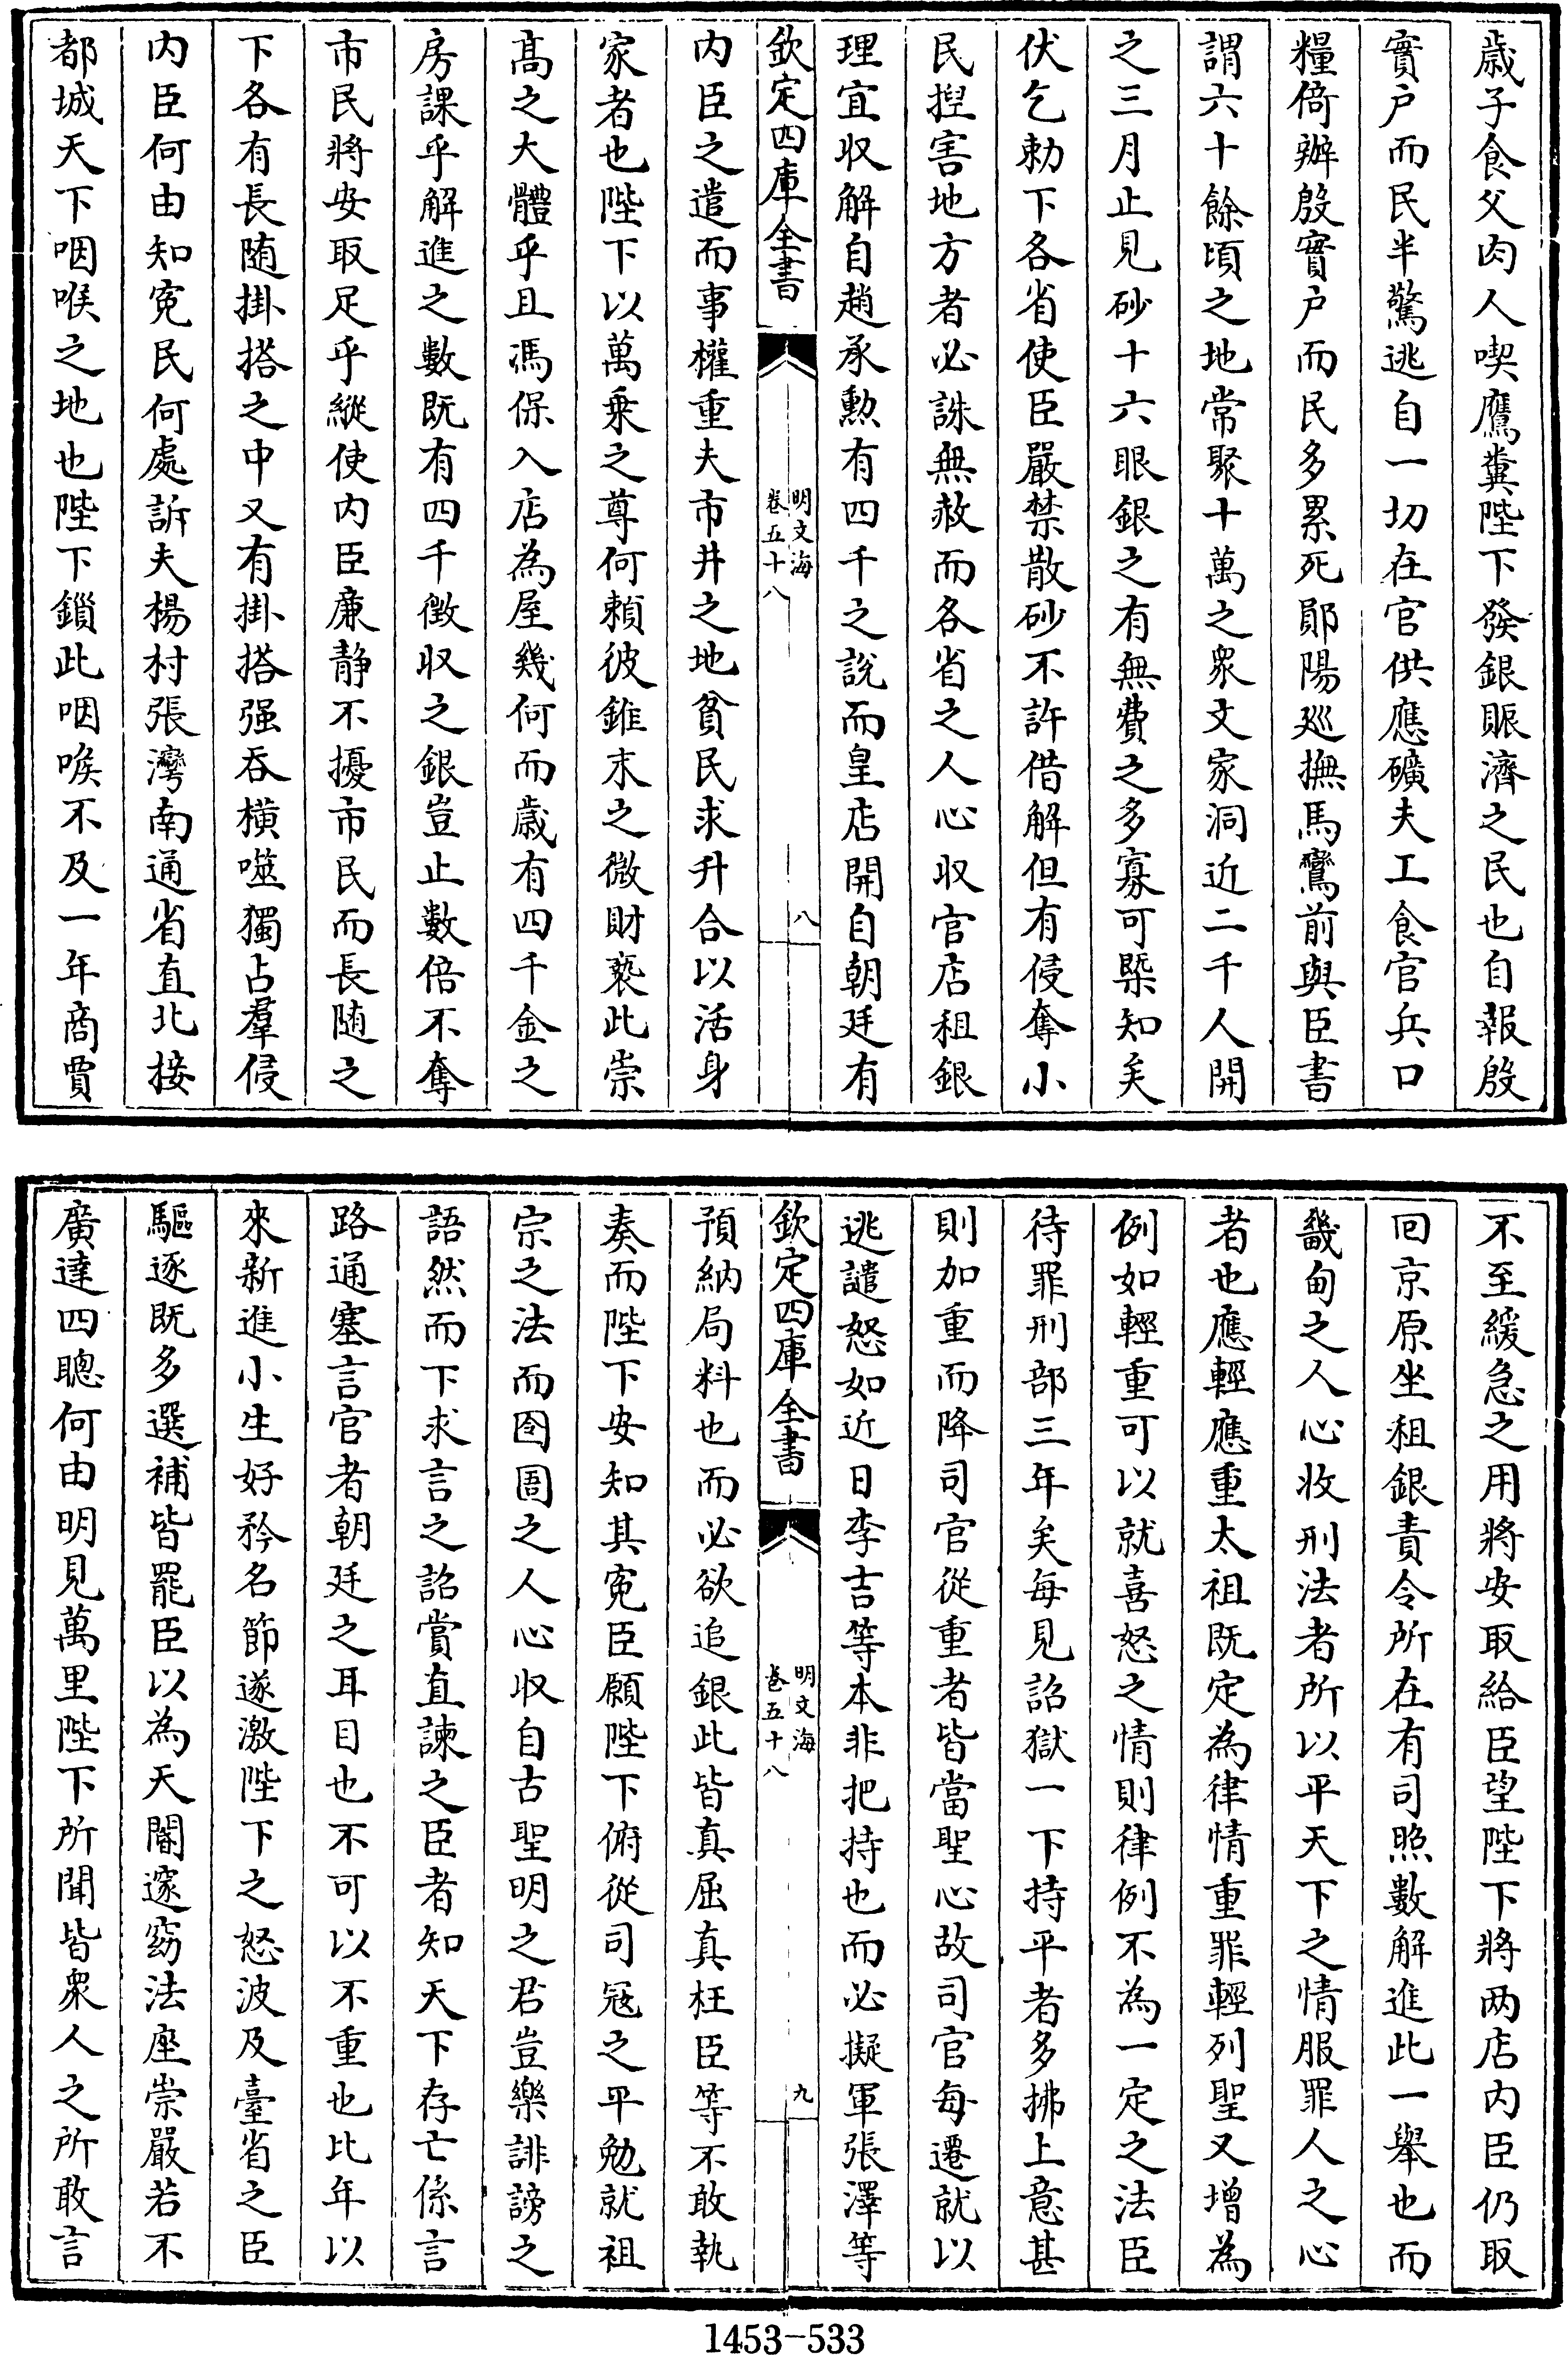 歲子食父肉人喫鷹糞陛下發銀賑濟之民也自報殷
實户而民半驚逃自一切在官供應礦夫工食官兵口
糧倚辦殷實户而民多累死鄖陽巡撫馬鸞前與臣書
謂六十餘頃之地常聚十萬之衆文家洞近二千人開
之三月止見砂十六眼銀之有無費之多寡可槩知矣
伏乞勅下各省使臣嚴禁散砂不許借解但有侵奪小
民揑害地方者必誅無赦而各省之人心収官店租銀
理宜収解自趙承勲有四千之説而皇店開自朝廷有
欽定四庫全書
明文海
卷五十八
八
内臣之遣而事權重夫市井之地貧民求升合以活身
家者也陛下以萬乗之尊何頼彼錐末之微財䙝此崇
髙之大體乎且馮保入店為屋幾何而歲有四千金之
房課乎解進之數既有四千徴収之銀豈止數倍不奪
市民將安取足乎縱使内臣廉静不擾市民而長随之
下各有長随掛搭之中又有掛搭强吞横噬獨占羣侵
内臣何由知寃民何處訴夫楊村張灣南通省直北接
都城天下咽喉之地也陛下鎖此咽喉不及一年商賈
不至緩急之用將安取給臣望陛下將两店内臣仍取
回京原坐租銀責令所在有司照數解進此一舉也而
畿甸之人心收刑法者所以平天下之情服罪人之心
者也應輕應重太祖既定為律情重罪輕列聖又增為
例如輕重可以就喜怒之情則律例不為一定之法臣
待罪刑部三年矣每見詔獄一下持平者多拂上意甚
則加重而降司官從重者皆當聖心故司官每遷就以
逃譴怒如近日李吉等本非把持也而必擬軍張澤等
欽定四庫全書
明文海
卷五十八
九
預納局料也而必欲追銀此皆真屈真枉臣等不敢執
奏而陛下安知其寃臣願陛下俯從司冦之平勉就祖
宗之法而囹圄之人心収自古聖明之君豈樂誹謗之
語然而下求言之詔賞直諫之臣者知天下存亡係言
路通塞言官者朝廷之耳目也不可以不重也比年以
來新進小生好矜名節遂激陛下之怒波及臺省之臣
驅逐既多選補皆罷臣以為天閽邃窈法座崇嚴若不
廣達四聰何由明見萬里陛下所聞皆衆人之所敢言
1453-533